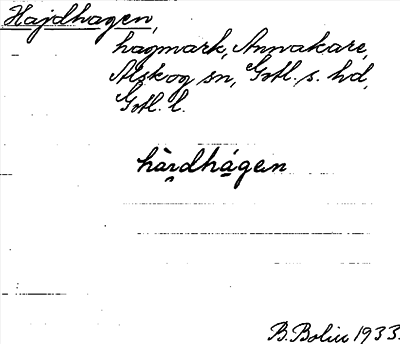 Hajdhagen,
hagmark, Annakare,
Alskog sn, Gotl. s. hd,
Gotl. l.
hàrdhágen
B. Bolin 1933.